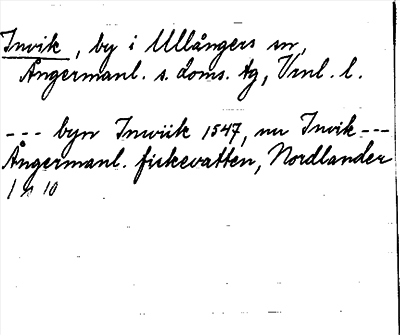 Invik, by i Ullångers sn,
Ångermanl. s. doms. tg, Vnl. l.
--- byn Inwiik 1547, nu Invik ---
Ångermanl. fiskevatten, Nordlander
1 s 10